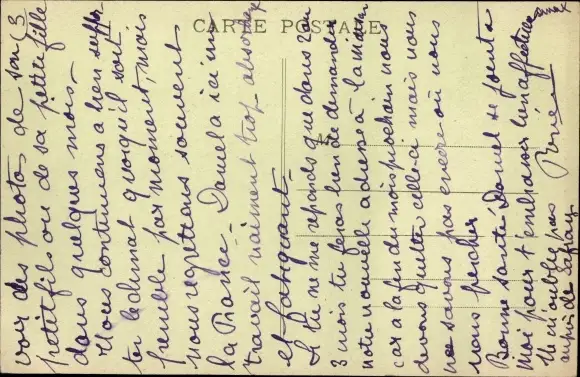 CARTE POSTALE
(3
voir des photos de son
petit fils ou de sa petite fille
dans quelques mois -
Nous continuons à bien suppor-
ter le climat quoiqu'il soit
penible par moment, mais
nous regrettons souvent
la France - Daniel a ici un
travail vraiment trop absorbant
et fatiguant -
Si tu ne me reponds que dans 2 ou
3 mois tu feras bien de demander
notre nouvelle adresse à la maison
car à la fin du mois prochain nous
devons quitter celle-ci mais nous
ne savons pas encore où nous
irons percher
Bonne santé Daniel se joint à
moi pour t'embrasser bien affectueusement
René
Ne m'oublie pas
auprès de